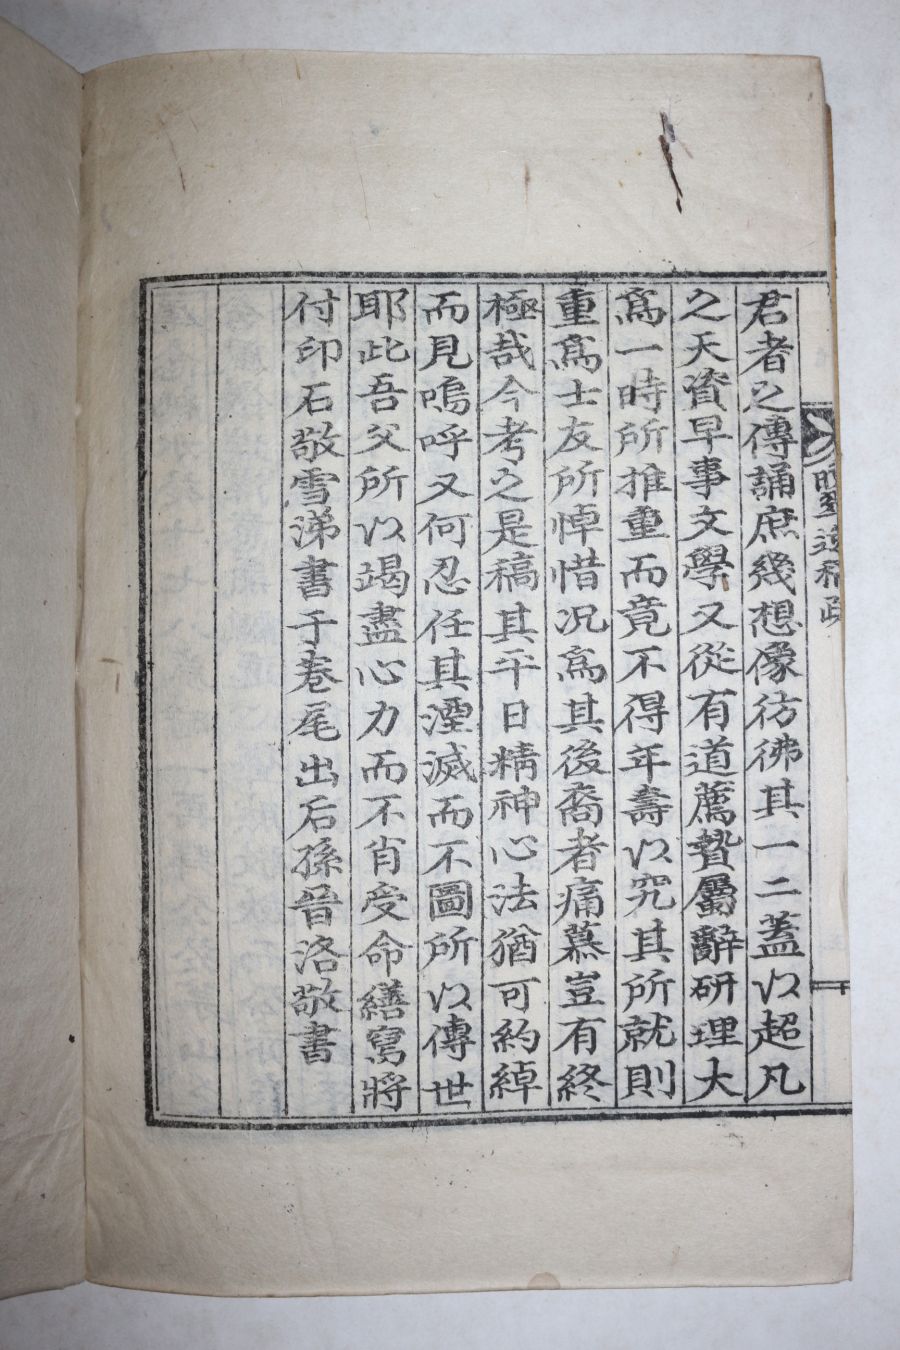 遺稿 跋
君者之傳誦庶幾想像彷彿其一二蓋以超凡
之天資早事文學又從有道薦贄屬辭硏理大
爲一時所推重而竟不得年壽以究其所就則
重爲士友所悼惜况爲其後裔者痛慕豈有終
極哉今考之是稿其平日精神心法猶可約綽
而見嗚呼又何忍任其湮滅而不圖所以傳世
耶此吾父所以竭盡心力而不肖受命繕寫將
付印石敬雪涕書于卷尾出后孫晉洛敬書